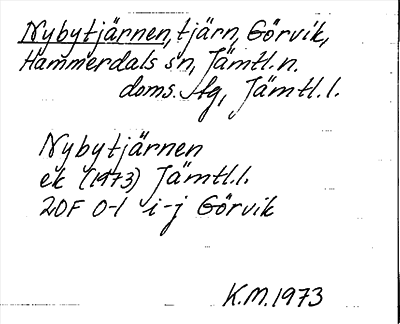 Nybytjärnen, tjärn, Görvik,
Hammerdals sn, Jämtl. n.
doms. tlg, Jämtl. l.
Nybytjärnen
ek (1973) Jämtl. l.
20F 0-1 i-j Görvik
K.M. 1973